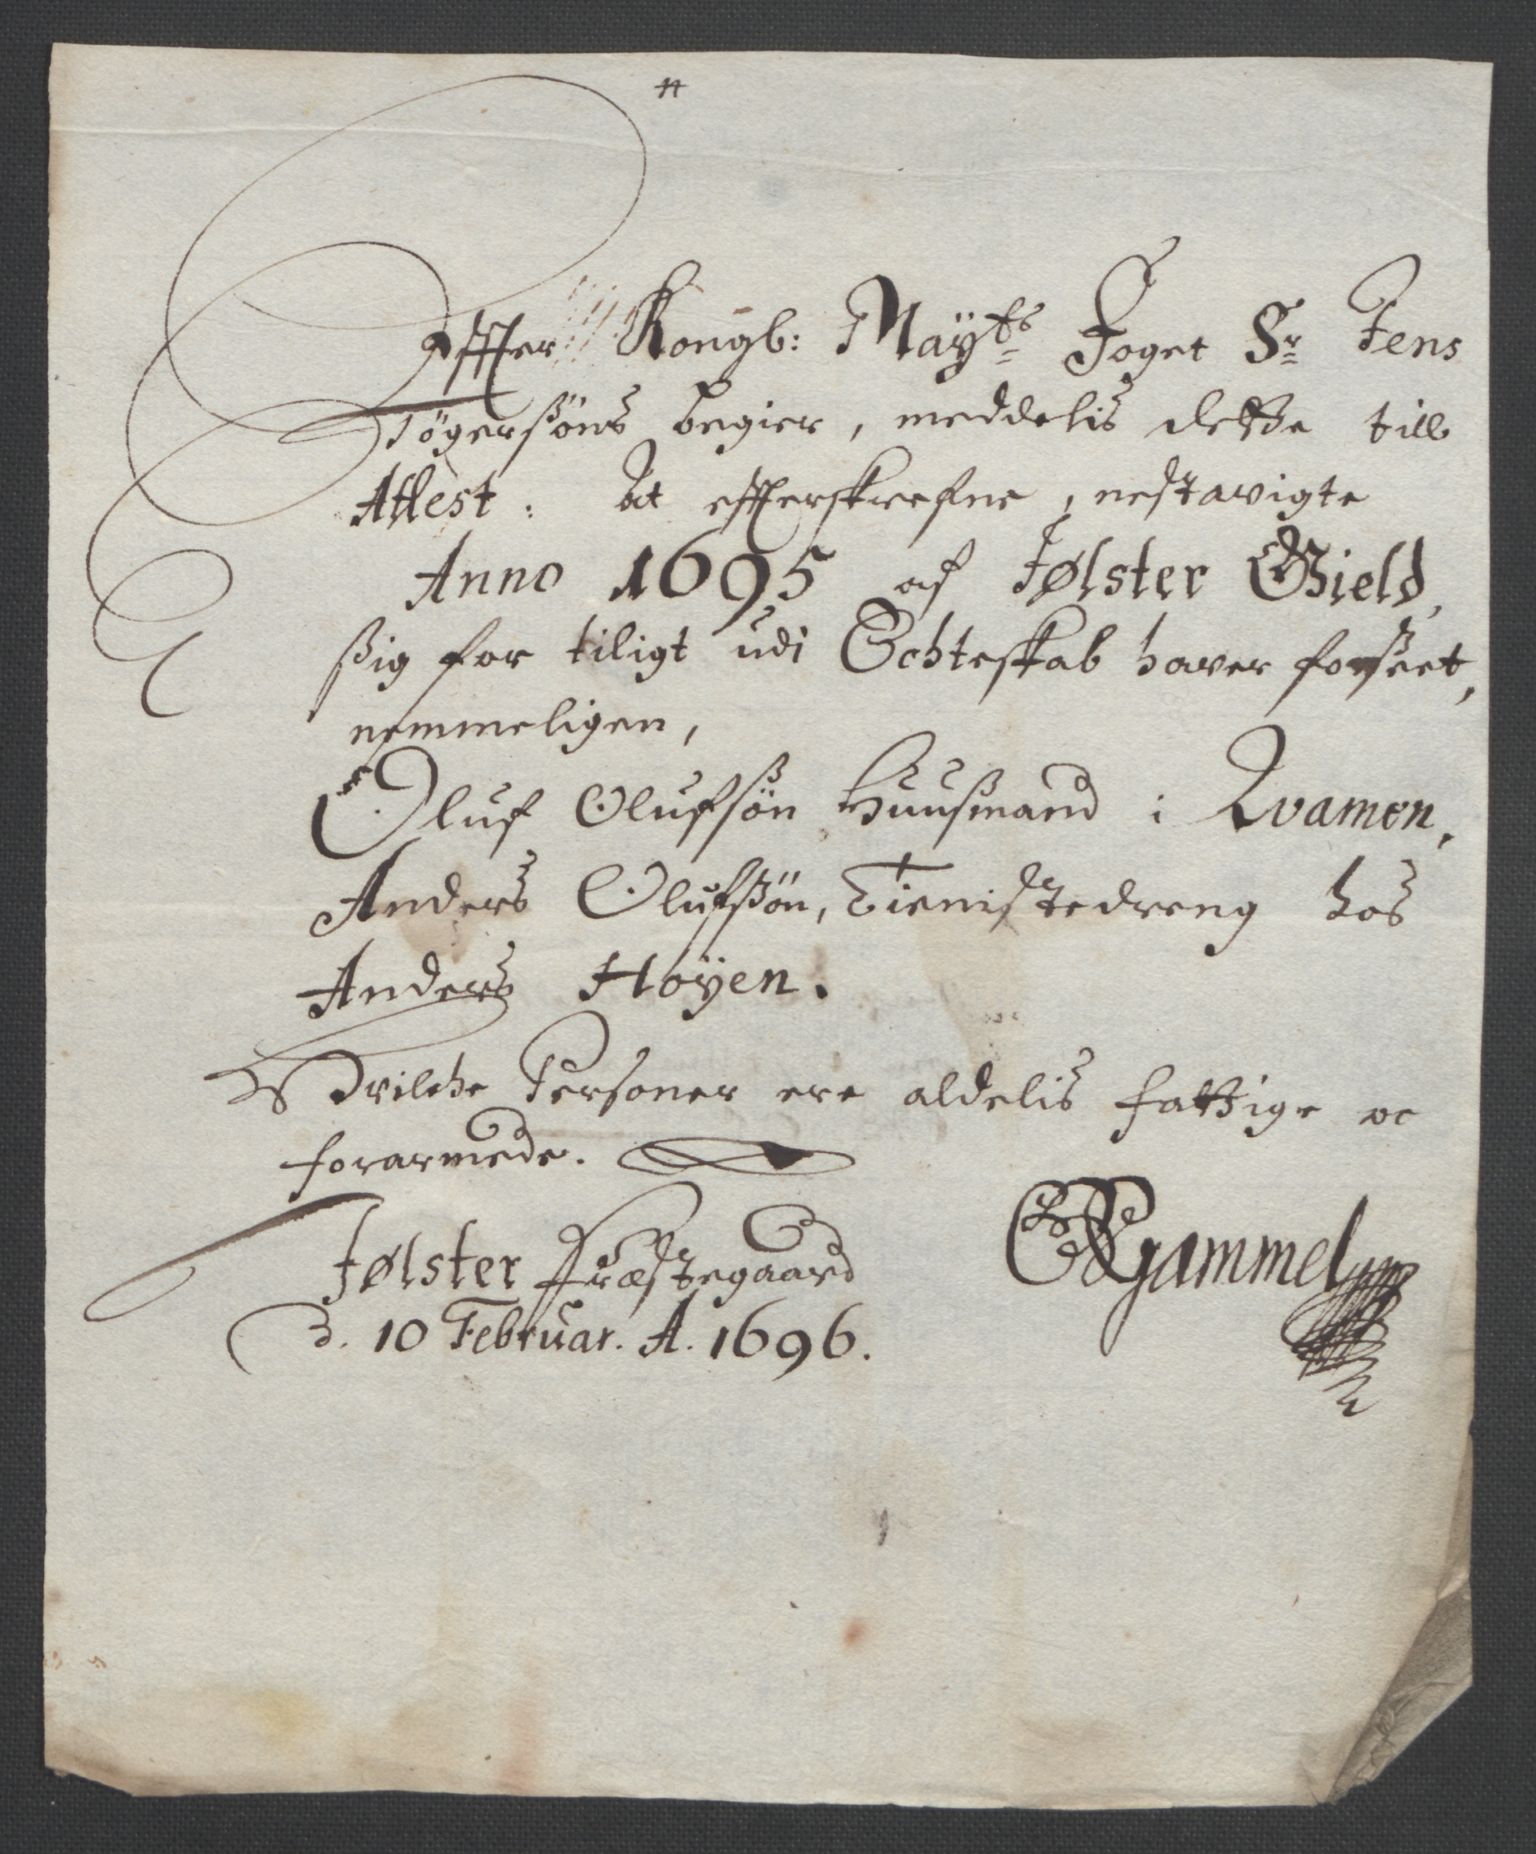 Effter Kongl: Mayts Foget Sr Jens
Tøgersøns begier, meddelis dette till
Attest: At effterskrefne, nestavigte
Anno 1695 af Jølster Gield,
sig for tiligt udi Echteskab haver forseet,
nemmeligen,
Oluf Olufsøn Huusmand i Qvamen,
Anders Olufsøn, Tienistedreng hos
Anders Høyen.
Hvilche Personer ere aldelis fattige oc
forarmede.
Jølster Præstegaard
d. 10 Februar. A. 1696.
Gammel